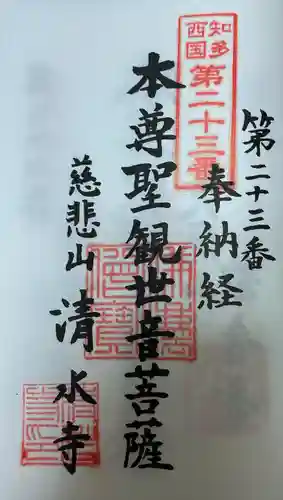 第二十三番
奉納経
知多
西国
第二十三番
本尊聖観世音菩薩
慈悲山
清水寺